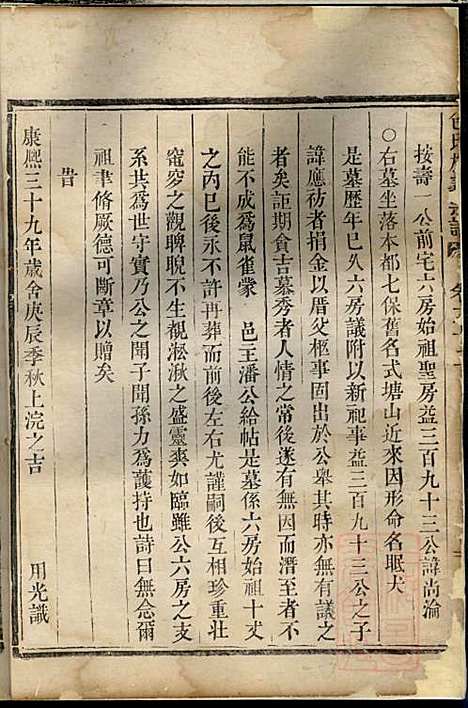 按壽一公前宅六房始祖聖房益三百九十三公諱尚淪
○右墓坐落本都七保舊名式塘山近來因形命名眠犬
是墓歷年已久六房議附以新祀事益三百九十三公之子
諱應祊者捐金以厝父柩事固出於公舉其時亦無有議之
者矣詎期食吉墓秀者人情之常後遂有無因而潛至者不
能不成為鼠雀蒙 邑王潘公給帖是墓係六房始祖十丈
之內已後永不許再葬而後左右尤謹嗣後互相珍重壯
窀穸之觀睥睨不生覩淞湫之盛靈爽如臨雖公六房之支
系共為世守實乃公之聞子聞孫力為護持也詩曰無念爾
祖聿脩厥德可斷章以贈矣
旹
康熈三十九年歲舍庚辰季秋上浣之吉 用光識